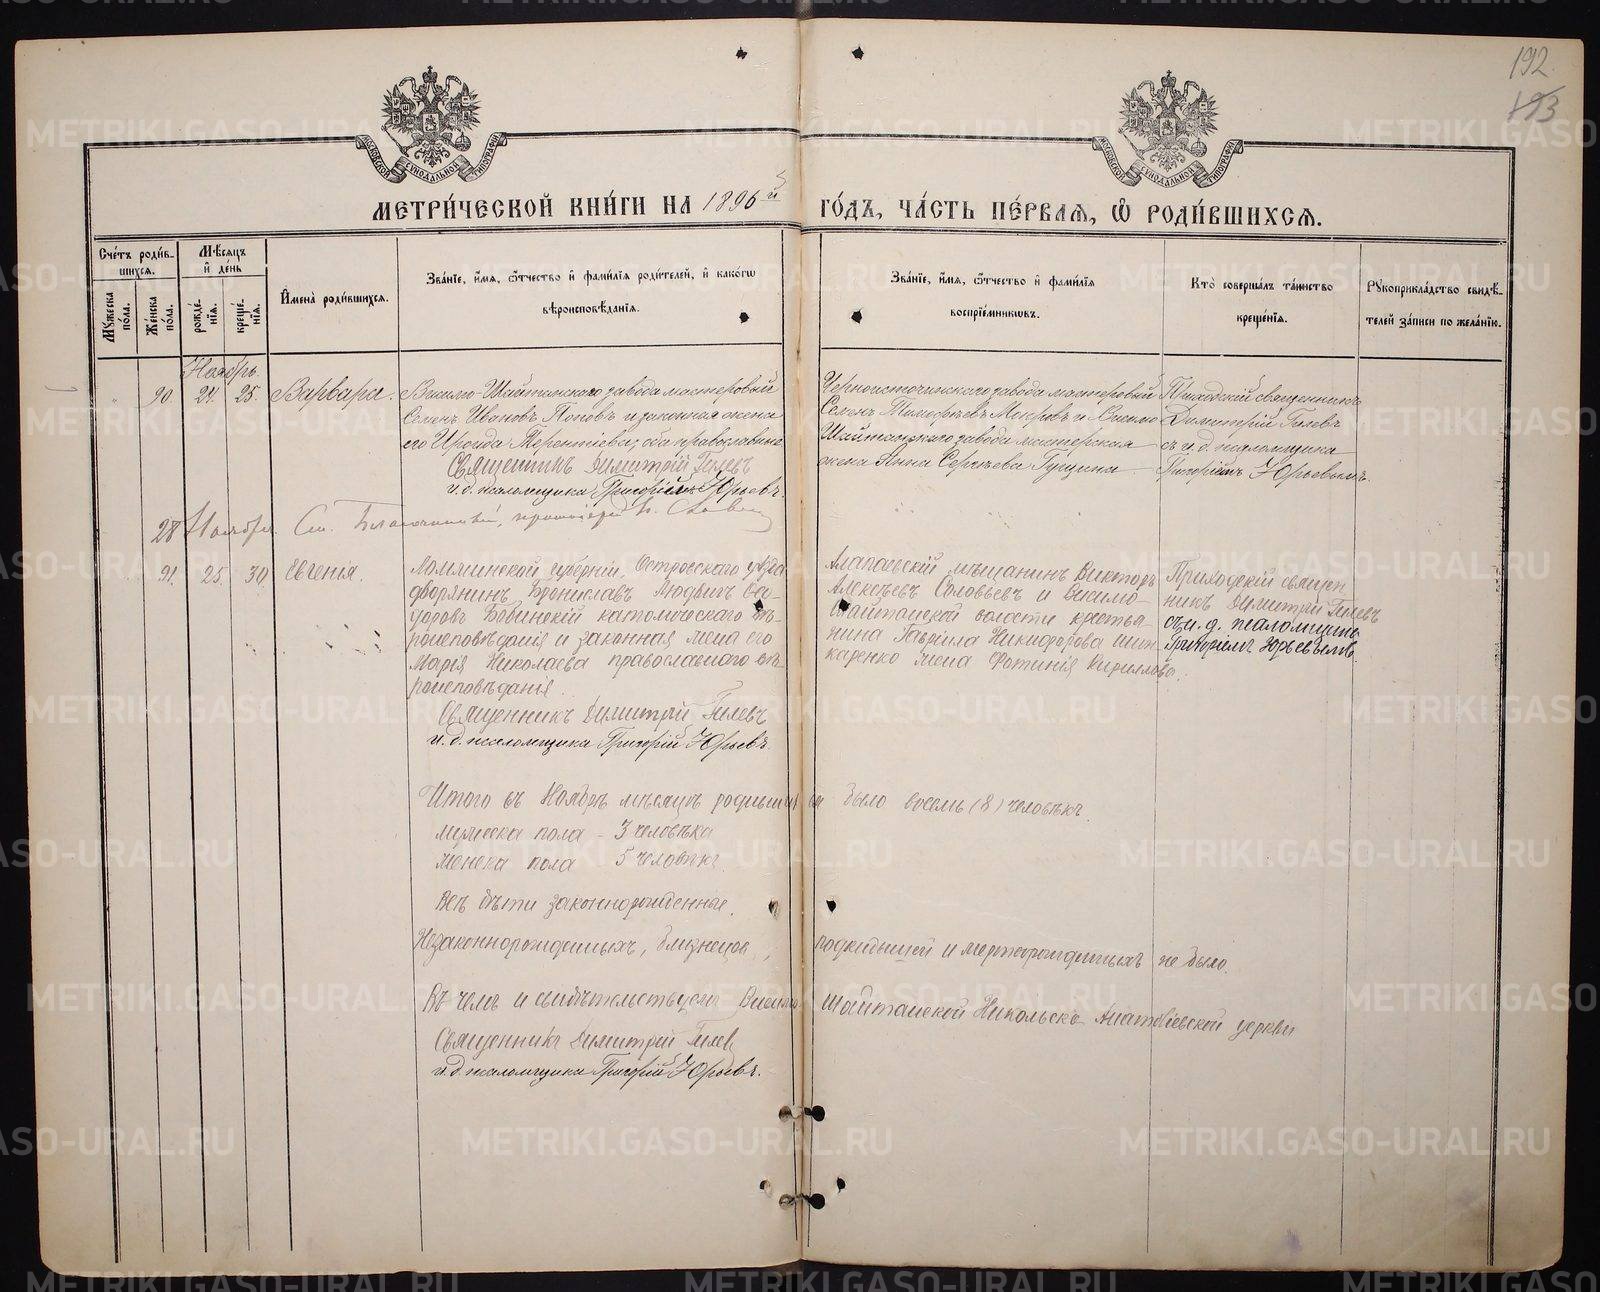 192
193
МОСКОВСКОЙ СѴНОДАЛЬНОЙ ТИПОГРАФІИ
МОСКОВСКОЙ СѴНОДАЛЬНОЙ ТИПОГРАФІИ
МЕТРИ́ЧЕСКОЙ КНИ́ГИ НА 1896 й ГО́ДЪ, ЧА́СТЬ ПЕ́РВАѦ, Ѽ РОДИ́ВШИХСѦ.
Сче́тъ роди́в-
шихсѧ.
Мѣ́сѧцъ
и҆ де́нь
Мꙋ́жеска по́ла.
Же́нска по́ла.
рожде́-нїѧ.
креще́-нїѧ.
И҆мена̀ роди́вшихсѧ.
Зва́нїе, и҆́мѧ, ѻ҆́тчество и҆ фами́лїѧ роди́телей, и҆ како́гѡ
вѣроисповѣ́данїѧ.
Зва́нїе, и҆́мѧ, ѻ҆́тчество и҆ фами́лїѧ
воспрїе́мникѡвъ.
Кто̀ соверша́лъ та́инство
креще́нїѧ.
Рꙋкоприкла́дство свидѣ́-
телей за́писи по жела́нїю.
Ноябрь
90. 24. 25. Варвара.
Висимо-Шайтанскаго завода мастеровый
Семенъ Ивановъ Поповъ и законная жена
его Ироида Терентіева; оба православные
Священникъ Димитрій Гилевъ
и.д. псаломщика Григорій Юрьевъ.
Черноисточинскаго завода мастеровый
Семенъ Тимофѣевъ Мокровъ и Висимо
Шайтанскаго завода мастерская
жена Анна Сергѣева Гущина
Приходскій священникъ
Димитрій Гилевъ
съ и.д. псаломщика
Григоріемъ Юрьевымъ.
28 Ноября. См. Благочинный, протоіерей
91. 25. 30 Евгенія.
Ломжинской губерніи, Островскаго уѣзда
дворянинъ Брониславъ Людвигъ Ѳео-
доровъ католическаго вѣ-
роисповѣданія и законная жена его
Марія Николаева православнаго вѣ-
роисповѣданія.
Священникъ Димитрій Гилевъ
и.д. псаломщика Григорій Юрьевъ.
Алапаевскій мѣщанинъ Викторъ
Алексѣевъ Соловьевъ и Висимо-
Шайтанской волости крестья-
нина Гавріила Никифорова Шин-
каренко жена Фотинія Кириллова.
Приходскій священ-
никъ Димитрій Гилевъ
съ и.д. псаломщика
Григоріемъ Юрьевымъ.
Итого въ Ноябрѣ мѣсяцѣ родившихся было восемь (8) человѣкъ.
мужеска пола – 3 человѣка
женска пола 5 человѣкъ.
Всѣ дѣти законнорожденные.
Незаконнорожденныхъ, близнецовъ, подкидышей и мертворожденныхъ не было.
Въ чемъ и свидѣтельствуемъ Висимо Шайтанской Николько Анатоліевской церкви
Священникъ Димитрій Гилевъ
и.д. псаломщика Григорій Юрьевъ.
METRIKI.GASO-URAL.RU